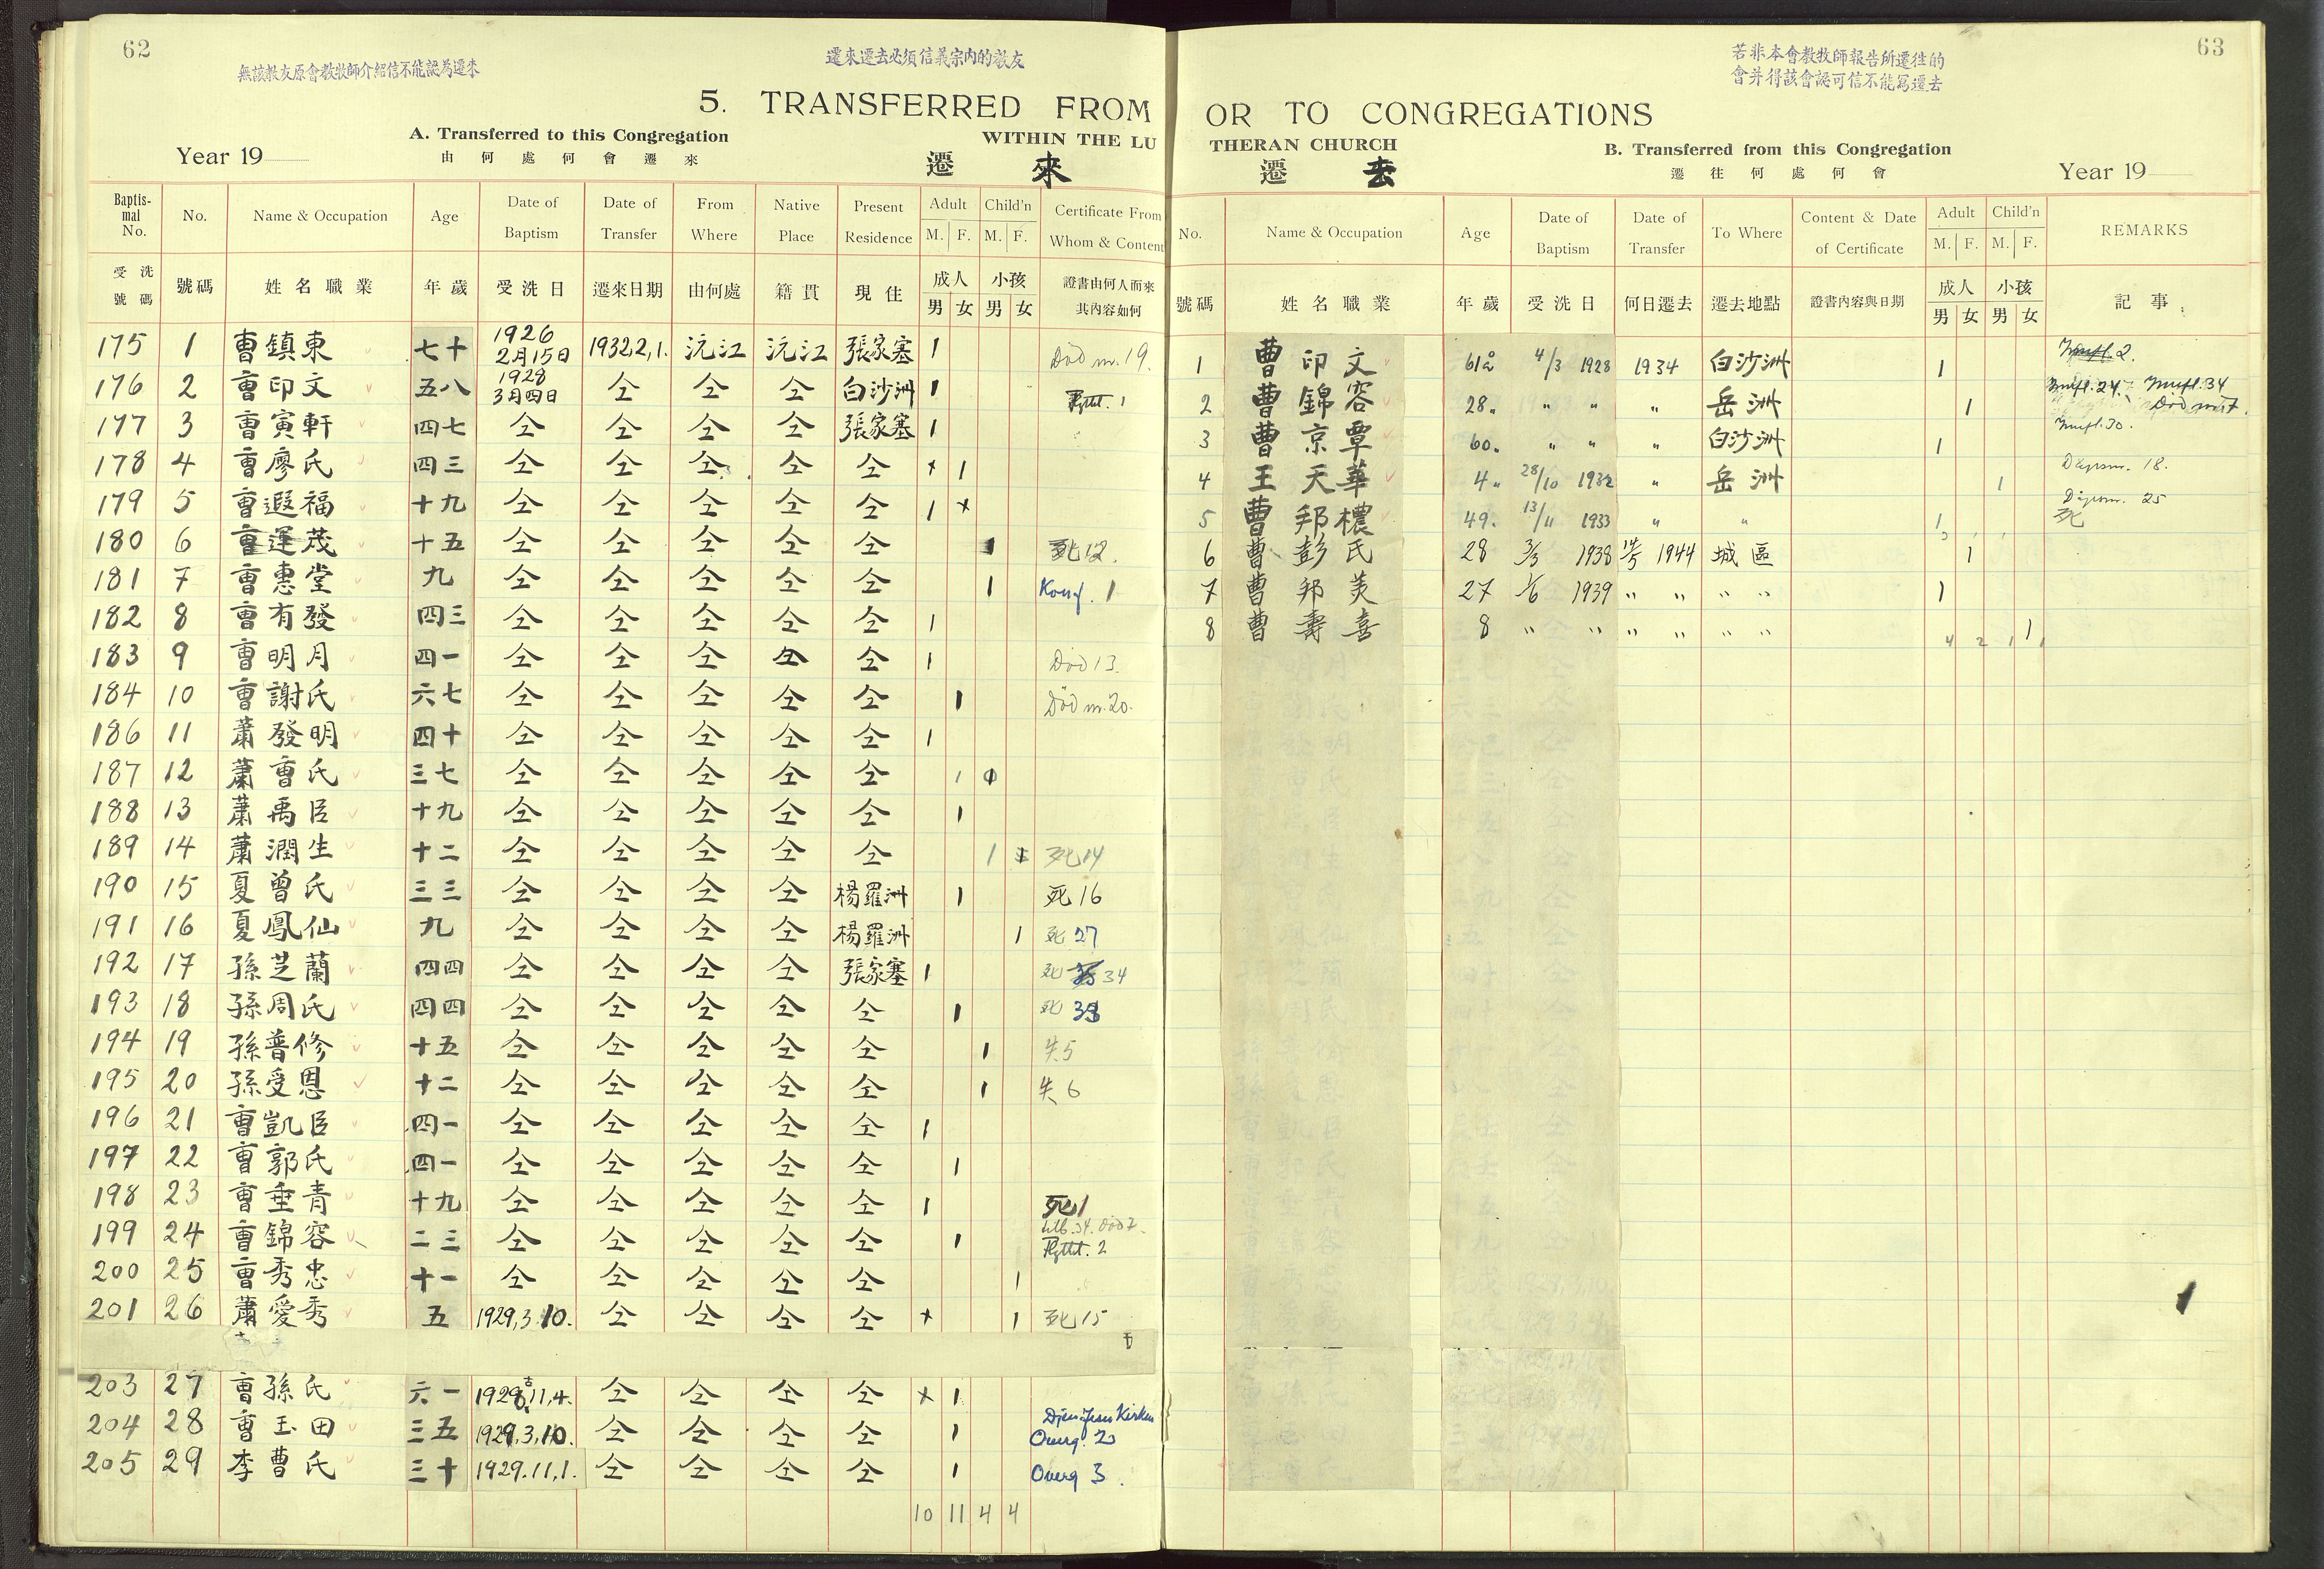 62
無該教友原會教牧師介紹信不能認為遷來
遷來遷去必須信義宗内的教友
5. TRANSFERRED FROM
A. Transferred to this Congregation
WITHIN THE LU
由何處何會遷來
Year 19
遷 來
Baptismal No. No. Name & Occupation Age Date of Baptism Date of Transfer From Where Native Place Present Residence Adult M. F. Child'n M. F. Certificate From Whom & Content
受洗號碼 號碼 姓名職業 年歲 受洗日 遷來日期 由何處 籍貫 現住 成人 男 女 小孩 男 女 證書由何人而來其內容如何
175 1 曹鎮東 七十 1926 2月15日 1932,2,1. 沅江 沅江 張家塞 1 Död m. 19.
176 2 曹印文 五八 1928 3月四日 仝 仝 仝 白沙洲 1
177 3 曹寅軒 四七 仝 仝 仝 仝 張家塞 1
178 4 曹廖氏 四三 仝 仝 仝 仝 仝 x 1
179 5 曹遐福 十九 仝 仝 仝 仝 仝 1 x
180 6 曹運茂 十五 仝 仝 仝 仝 仝 1 死12.
181 7 曹惠堂 九 仝 仝 仝 仝 仝 1 Konf. 1
182 8 曹有發 四三 仝 仝 仝 仝 仝 1
183 9 曹明月 四一 仝 仝 仝 仝 仝 1 Död 13.
184 10 曹謝氏 六七 仝 仝 仝 仝 仝 1 Död m. 20.
186 11 蕭發明 四十 仝 仝 仝 仝 仝 1
187 12 蕭曹氏 三七 仝 仝 仝 仝 仝 1
188 13 蕭禹臣 十九 仝 仝 仝 仝 仝 1
189 14 蕭潤生 十二 仝 仝 仝 仝 仝 1 死14
190 15 夏曾氏 三三 仝 仝 仝 仝 楊羅洲 1 死16
191 16 夏鳳仙 九 仝 仝 仝 仝 楊羅洲 1 死27
192 17 孫芝蘭 四四 仝 仝 仝 仝 張家塞 1 死 34
193 18 孫周氏 四四 仝 仝 仝 仝 仝 1 死
194 19 孫普修 十五 仝 仝 仝 仝 仝 1 失5
195 20 孫受恩 十二 仝 仝 仝 仝 仝 1 失6
196 21 曹凱臣 四一 仝 仝 仝 仝 仝 1
197 22 曹郭氏 四一 仝 仝 仝 仝 仝 1
198 23 曹垂青 十九 仝 仝 仝 仝 仝 1 死1
199 24 曹錦容 二三 仝 仝 仝 仝 仝 1
200 25 曹秀忠 十一 仝 仝 仝 仝 仝 1
201 26 蕭愛秀 五 1929,3.10. 仝 仝 仝 仝 x 1 死15
203 27 曹孫氏 六一 11,4. 仝 仝 仝 仝 x 1
204 28 曹玉田 三五 1929,3,10. 仝 仝 仝 仝 1 Overg. 2
205 29 李曹氏 三十 1929.11,1. 仝 仝 仝 仝 1 Overg 3.
10 11 4 4
63
若非本會教牧師報告所遷往的
會并得該會認可信不能寫遷去
OR TO CONGREGATIONS
THERAN CHURCH
B. Transferred from this Congregation
遷往何處何會
Year 19
遷 去
No. Name & Occupation Age Date of Baptism Date of Transfer To Where Content & Date of Certificate Adult M. F. Child'n M. F. REMARKS
號碼 姓名職業 年歲 受洗日 何日遷去 遷去地點 證書內容與日期 成人 男 女 小孩 男 女 記事
1 曹印文 61 4/3 1928 1934 白沙洲 1
2 曹錦容 28 " " " 岳洲 1
3 曹京覃 60 " " " 白沙洲 1
4 王天華 4 28/10 1932 " 岳洲 1 18.
5 曹邦檂 49. 13/11 1933 " " 1 25 死
6 曹彭氏 28 3/3 1938 14/5 1944 城區 1
7 曹邦美 27 1/6 1939 " " " " 1
8 曹壽喜 8 " " " " " " 1
4 2 1 1